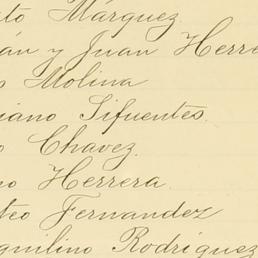 to Márquez
án y Juan Herre
s Molina
iano Sifuentes.
o Chavez.
no Herrera.
teo Fernandez
quilino Rodriguez